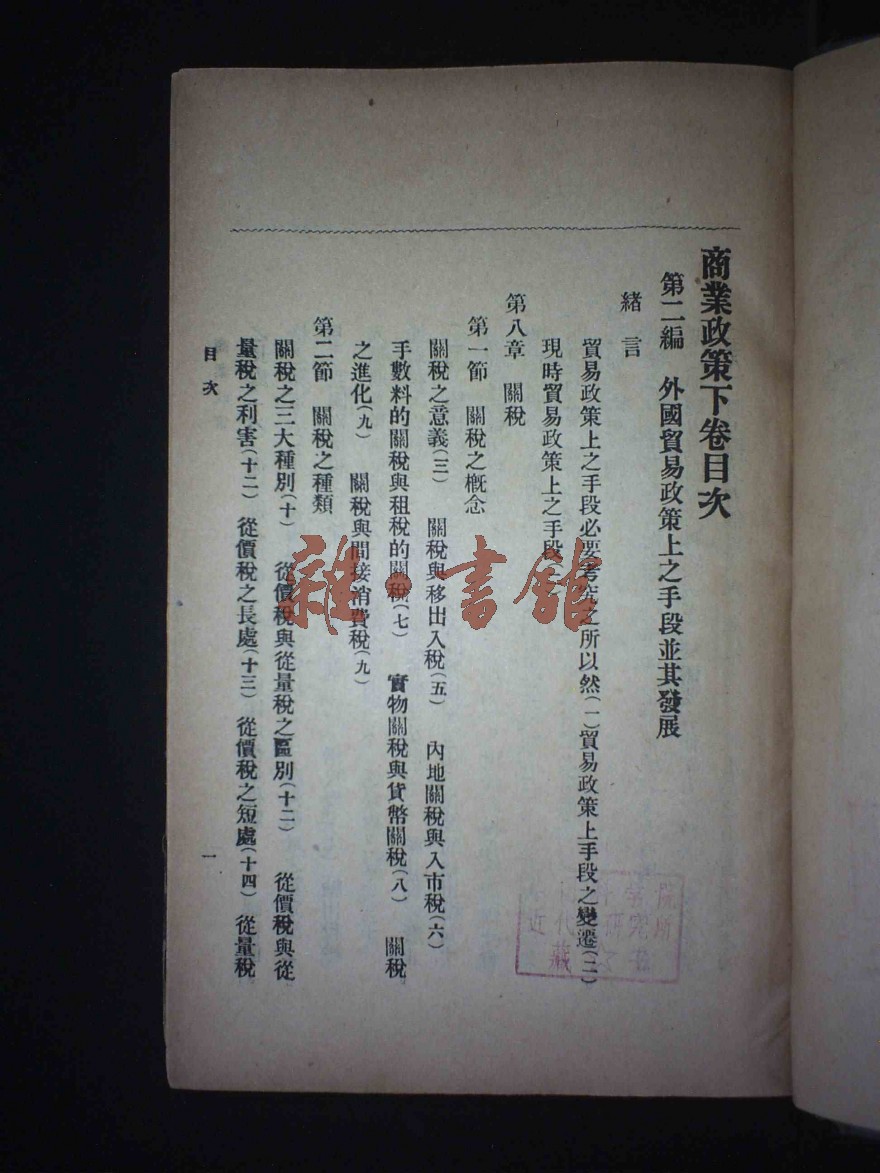 商業政策下卷目次
第二編　外國貿易政策上之手段並其發展
緒　言
貿易政策上之手段必要考究之所以然(一)貿易政策上手段之變遷(二)
現時貿易政策上之手段
第八章　關稅
第一節　關稅之概念
關稅之意義(三)　關稅與移出入稅(五)　內地關稅與入市稅(六)
手數料的關稅與租稅的關稅(七)　實物關稅與貨幣關稅(八)　關稅
之進化(九)　關稅與間接消費稅(九)
第二節　關稅之種類
關稅之三大種別(十)　從價稅與從量稅之區別(十二)　從價稅與從
量稅之利害(十二)　從價稅之長處(十三)　從價稅之短處(十四)　從量稅
目　次
一
雜·書館
近代
研究所
藏